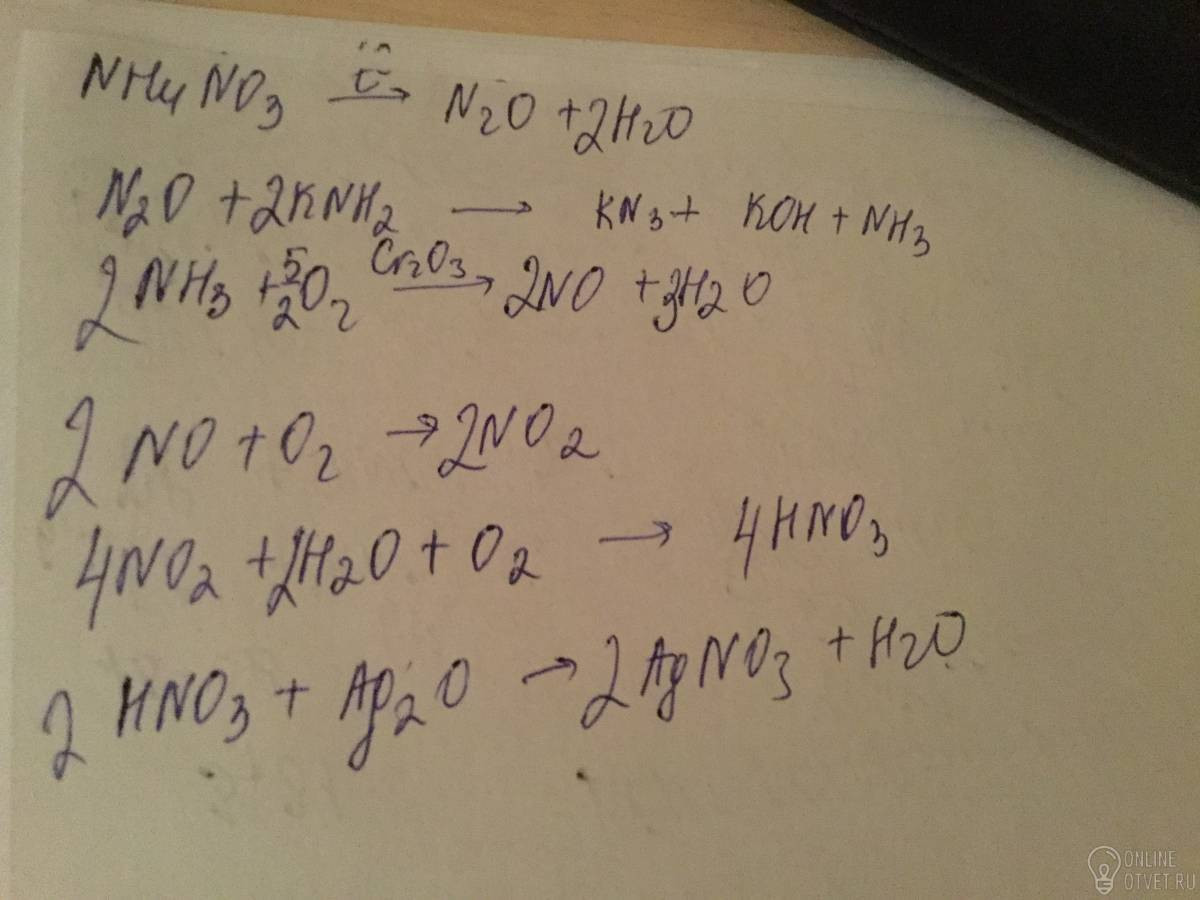 NH4NO3 t° → N2O + 2H2O
N2O + 2KNH2 → KN3 + KOH + NH3
2NH3 + 5/2O2 Cr2O3 → 2NO + 3H2O
2NO + O2 → 2NO2
4NO2 + 2H2O + O2 → 4HNO3
2HNO3 + Ag2O → 2AgNO3 + H2O
ONLINE
OTVET.RU